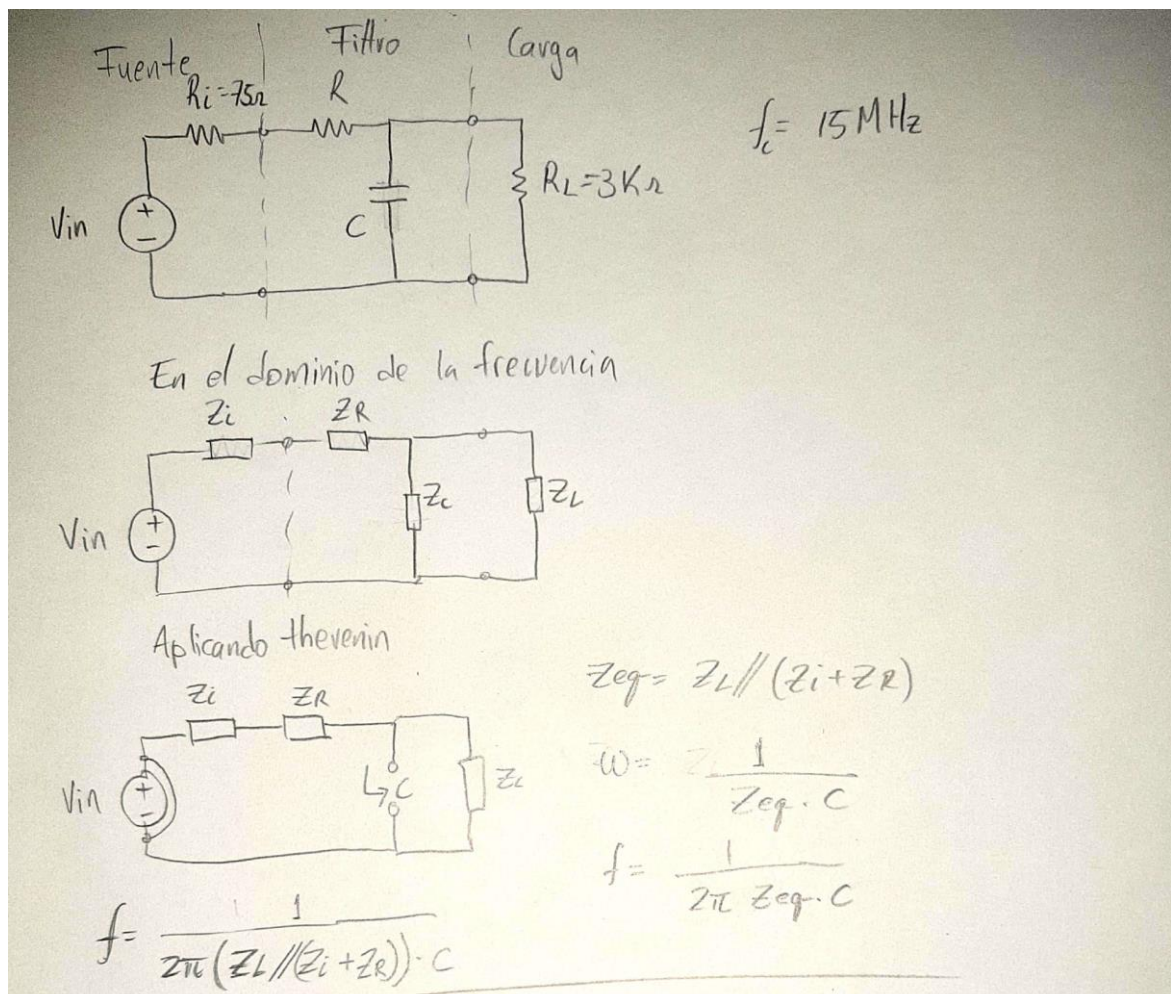 Fuente
Filtro
Carga
Ri=75Ω
R
fc= 15MHz
Vin
+
-
C
RL=3KΩ
En el dominio de la frecuencia
Zi
ZR
Vin
+
-
Zc
ZL
Aplicando thevenin
Zi
ZR
Vin
+
-
C
ZL
Zeq= ZL//(Zi+ZR)
W= 1/(Zeq.C)
f= 1/(2π Zeq.C)
f= 1/(2π(ZL//(Zi+ZR)).C)